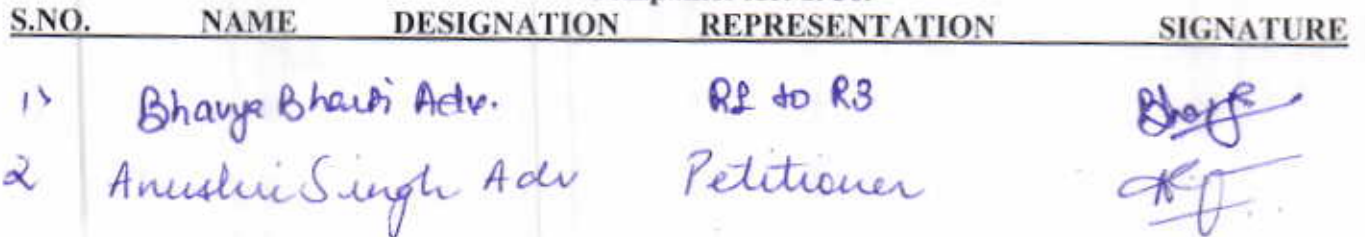 S.NO. NAME DESIGNATION REPRESENTATION SIGNATURE
1) Bhavya Bharti Adv. R1 to R3 Bhavya
2 Anushri Singh Adv Petitioner